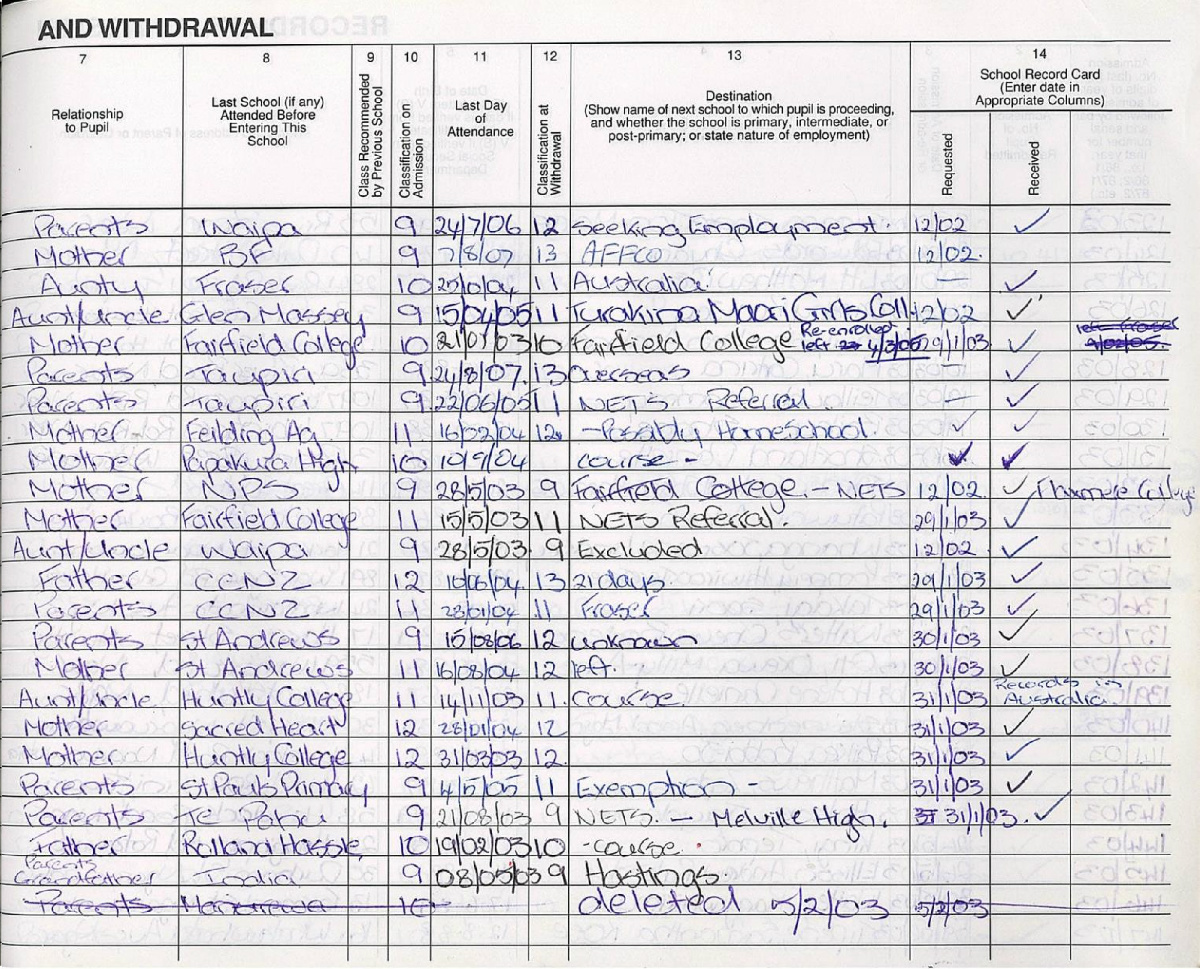 AND WITHDRAWAL
7 8 9 10 11 12 13 14
Relationship to Pupil
Last School (if any) Attended Before Entering This School
Class Recommended by Previous School
Classification on Admission
Last Day of Attendance
Classification at Withdrawal
Destination
(Show name of next school to which pupil is proceeding, and whether the school is primary, intermediate, or post-primary; or state nature of employment)
School Record Card
(Enter date in Appropriate Columns)
Requested
Received
Parents Waipa 9 24/7/06 12 Seeking Employment. 12/02 ✓
Mother BF 9 7/8/07 13 AFFCO 12/02.
Aunty Fraser 10 11 Australia ✓
Aunt/uncle Glen Massey 9 15/04/05 11 Turakina Maori Girls Coll 12/02 ✓
Mother Fairfield College 10 21/07/03 10 Fairfield College Re-enrolled left 4/3/05 29/1/03 ✓
Parents Taupiri 9 24/8/07. 13 Overseas ✓
Parents Taupiri 9 22/06/05 11 NETS Referral. ✓
Mother Feilding Ag. 11 16/02/04 12. -Possibly HomeSchool. ✓ ✓
Mother Papakura High 10 10/9/04 course - ✓ ✓
Mother NPS 9 28/5/03 9 Fairfield College. - NETS 12/02 ✓ Flaxmere College
Mother Fairfield College 11 15/5/03 11 NETS Referral. 29/1/03 ✓
Aunt/Uncle Waipa 9 28/5/03 9 Excluded 12/02 ✓
Father CCNZ 12 13 21 days 29/1/03 ✓
Parents CCNZ 11 28/01/04 11 Fraser 29/1/03 ✓
Parents St Andrews 9 15/08/06 12 unknown 30/1/03 ✓
Mother St Andrews 11 16/08/04 12 left. 30/1/03 ✓
Aunt/uncle Huntly College 11 14/11/03 11. Course. 31/1/03 Records in Australia.
Mother Sacred Heart 12 28/01/04 12 31/1/03 ✓
Mother Huntly College 12 31/03/03 12. 31/1/03 ✓
Parents St Pauls Primary 9 4/5/05 11 Exemption - 31/1/03 ✓
Parents Te 9 21/08/03 9 NETS. - Melville High. 31/1/03. ✓
Father Rolland Hassle 10 19/02/03 10 -course.
Parents
Grandfather India 9 08/05/03 9 Hastings.
Parents 10 deleted 5/2/03 5/2/03